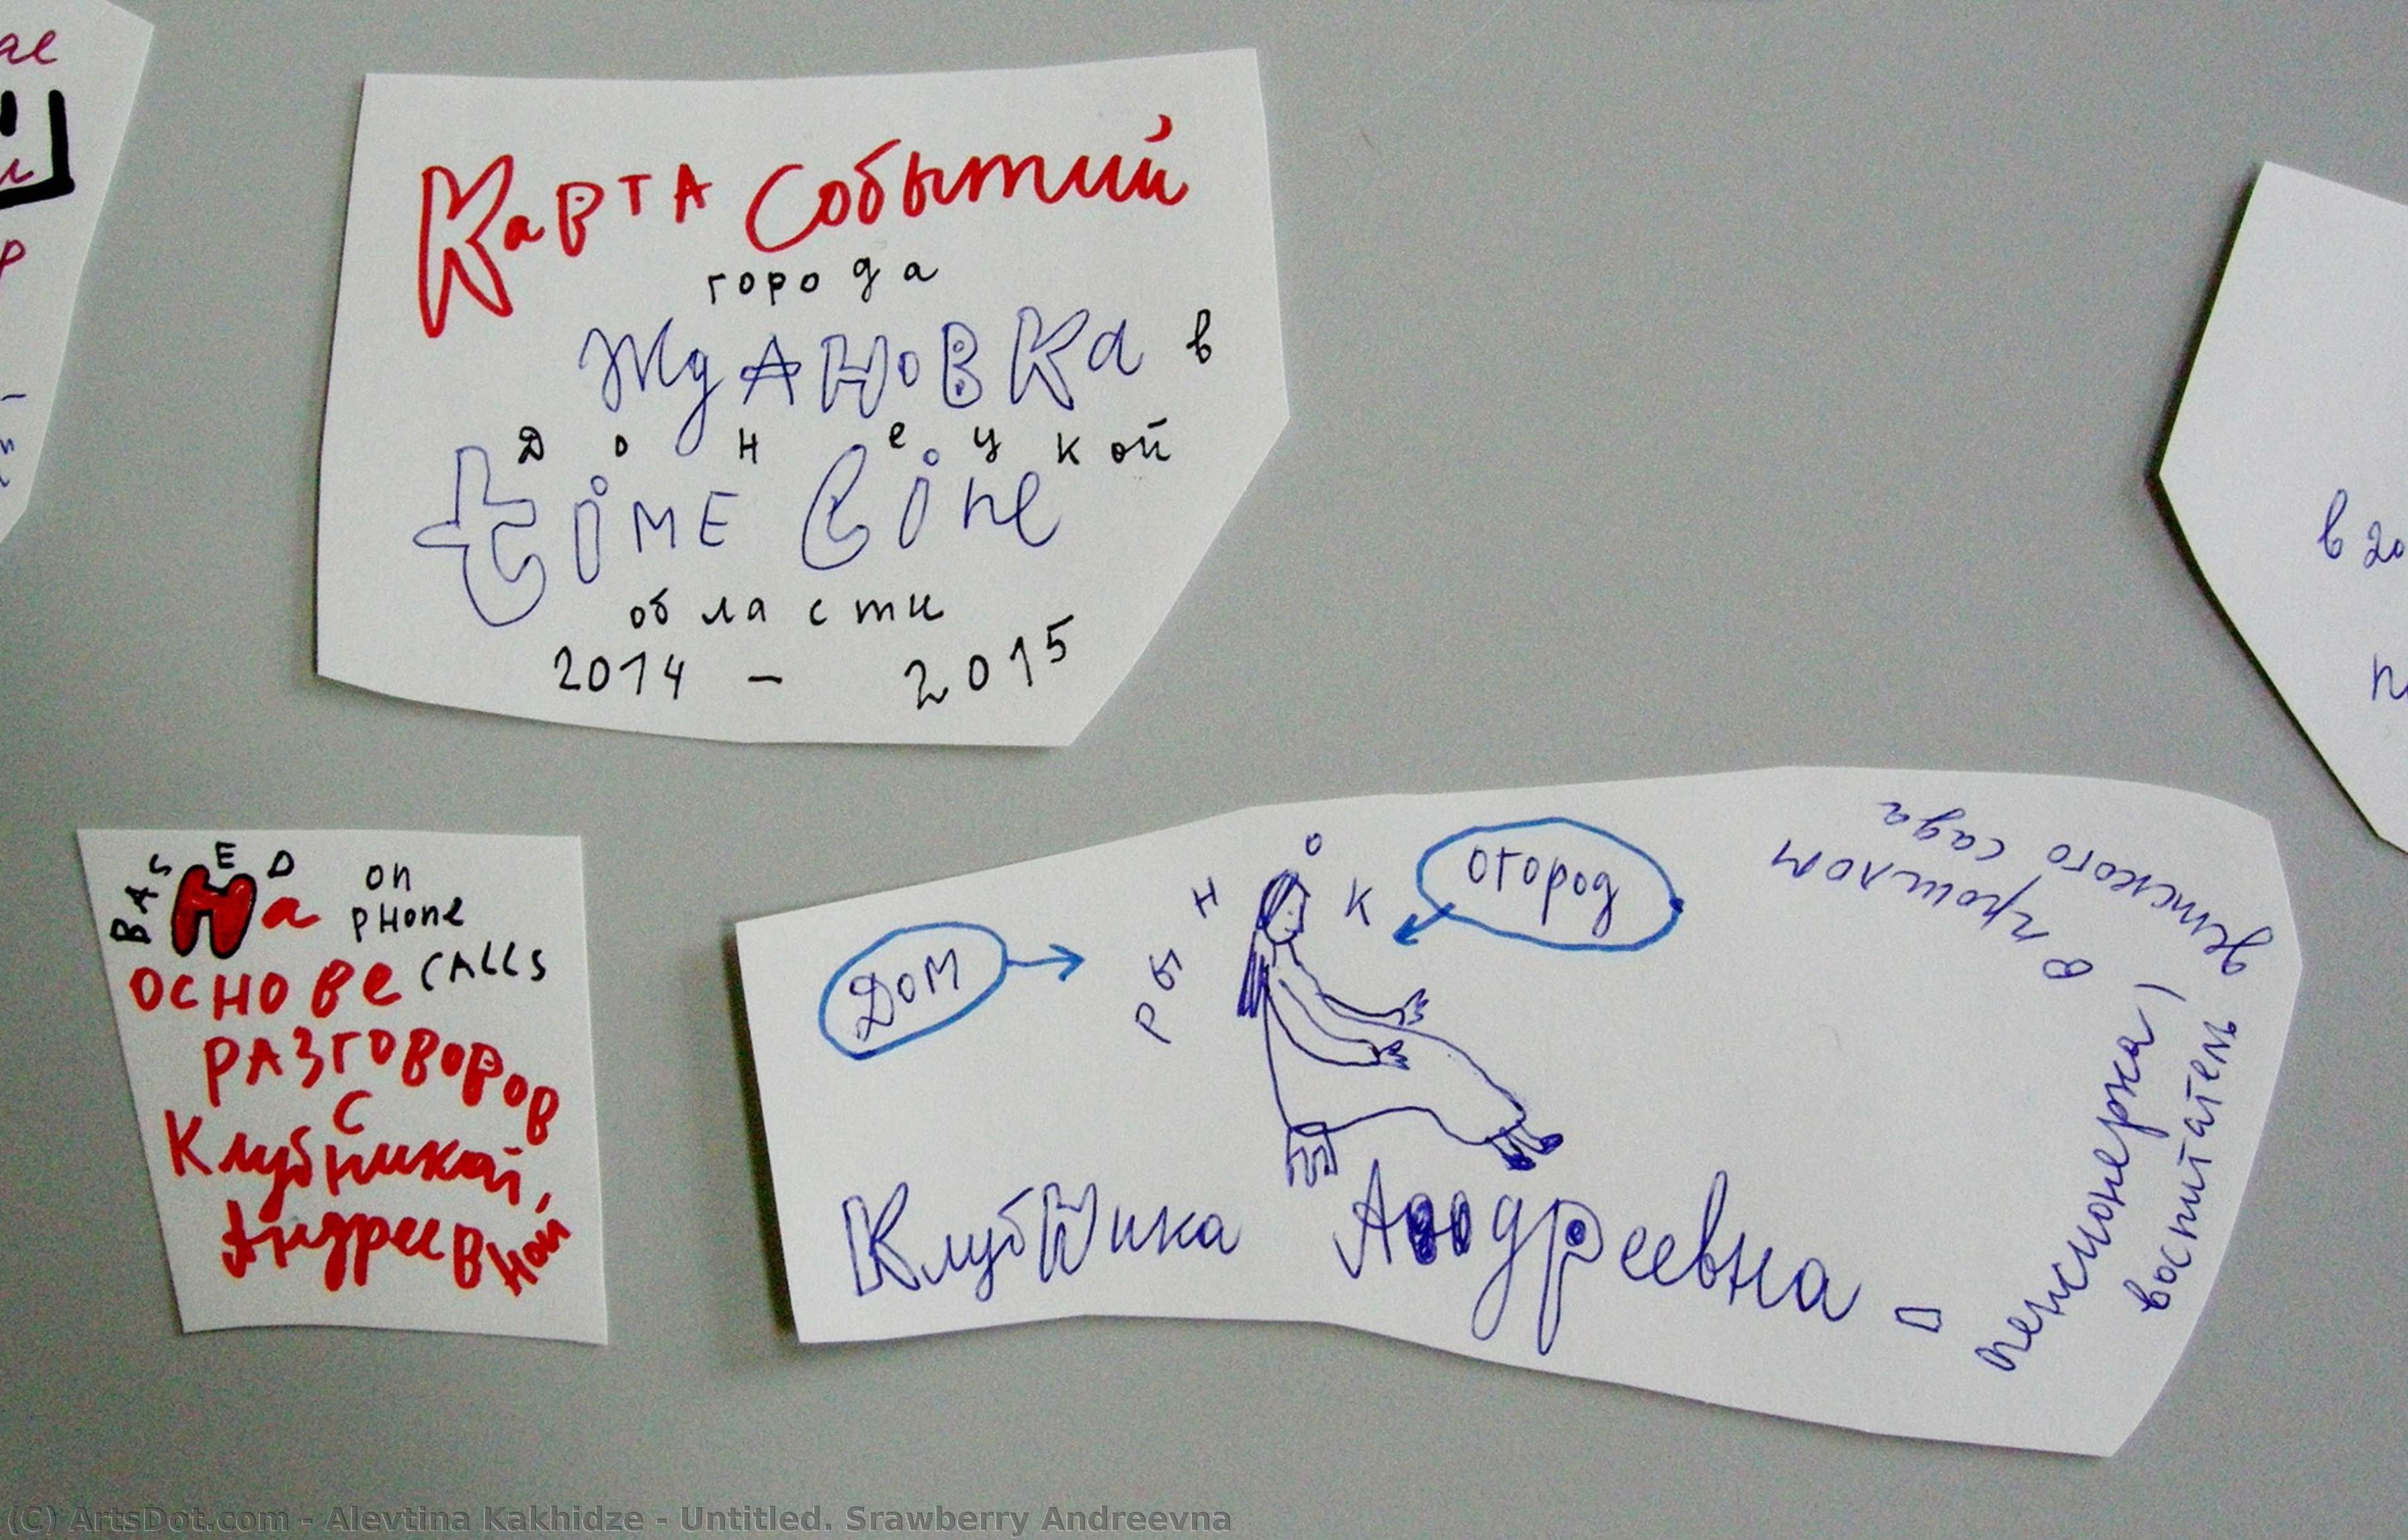 Карта Событий
города
Ждановка в
Донецкой
time line
области
2014 – 2015
BASED on
phone
CALLS
На
основе
разговоров
с
Клубникай,
Андреевной
Дом
РЫНОК
огород
Клубника Андреевна -
пенсионерка,
в прошлом
воспитатель
детского сада
в 20
(C) ArtsDot.com - Alevtina Kakhidze - Untitled. Srawberry Andreevna